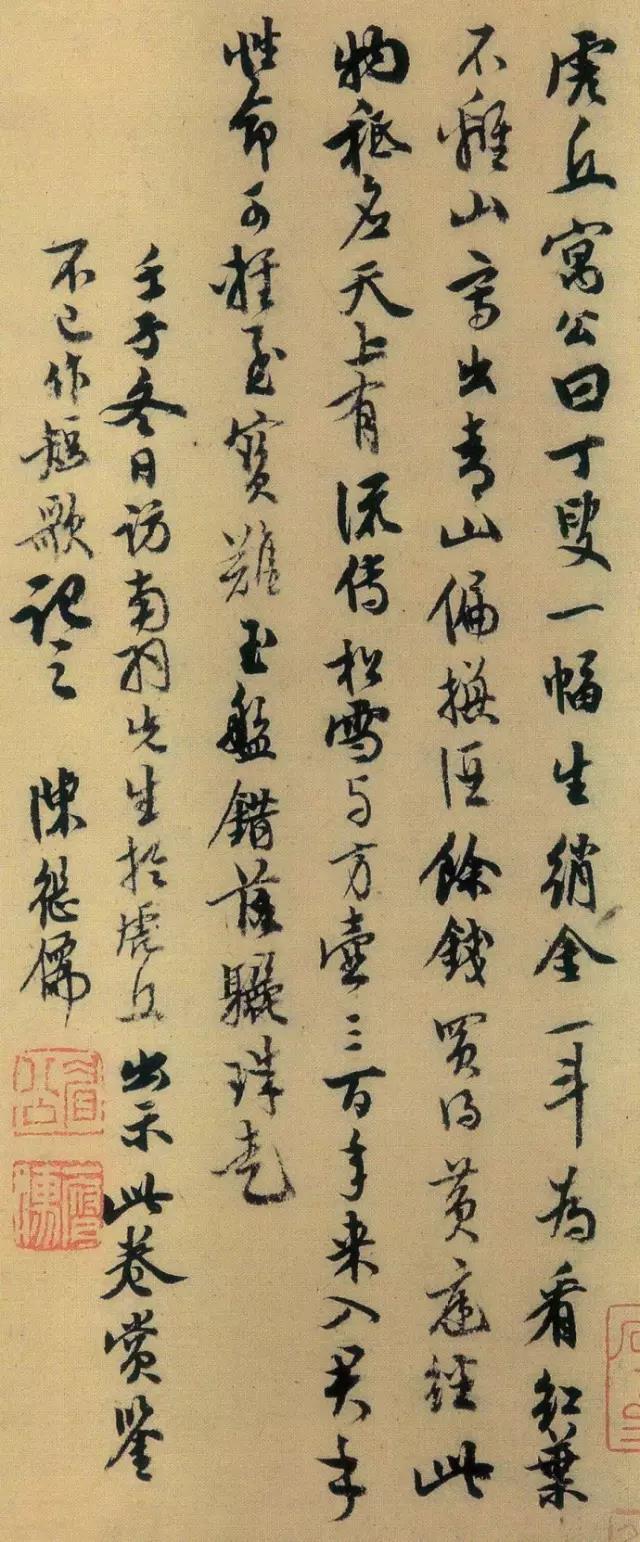 虎丘寓公曰丁叟一幅生綃金一斗為看紅葉
不離山寫出青山偏換酒餘錢買得黃庭經此
物秪应天上有流傳松雪与方壺三百年来入君手
性命可輕至寶難玉盤錯落驪珠走
壬子冬日访南羽先生於虎丘出示此卷赏鉴
不已作短歌记之 陳继儒